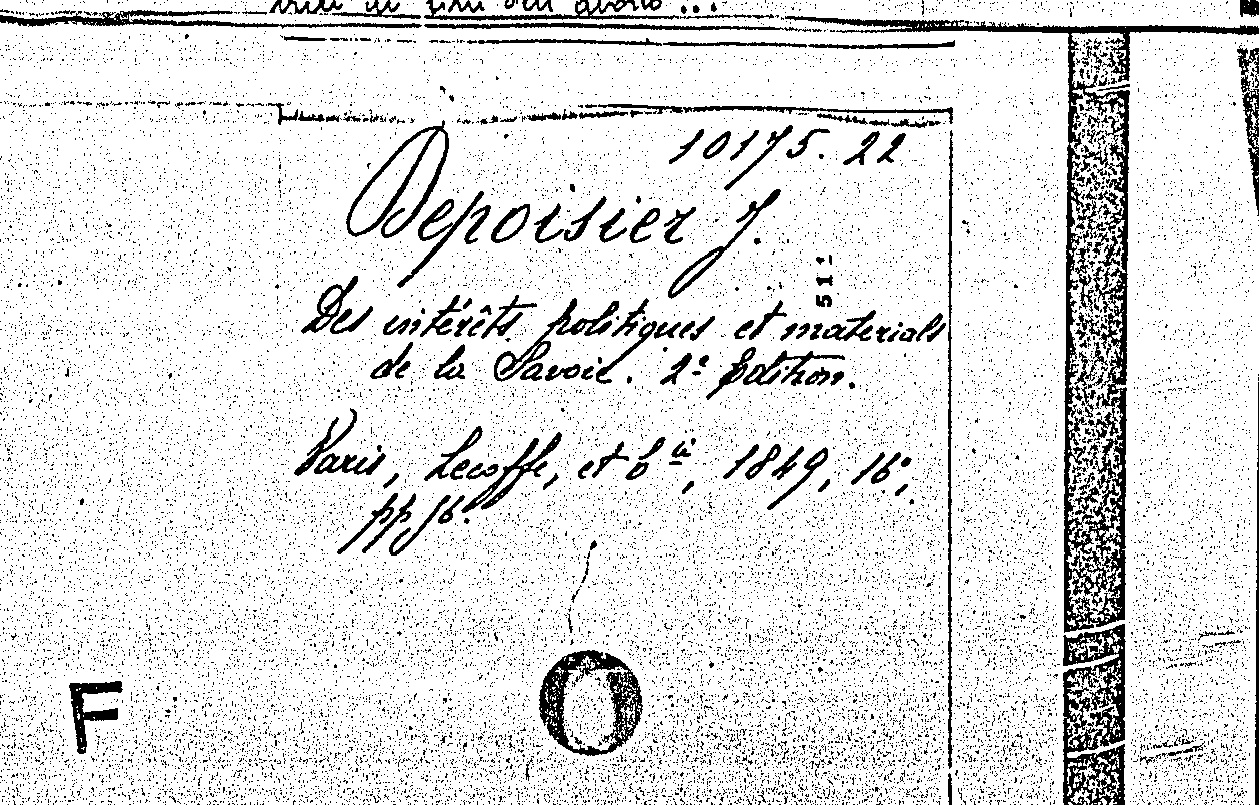 10175. 22
Depoisier J.
511
Des intérêts politiques et materials
de la Savoie. 2e Edition.
Paris, Lecoffe, et C.ie, 1849, 16°,
pp.
F